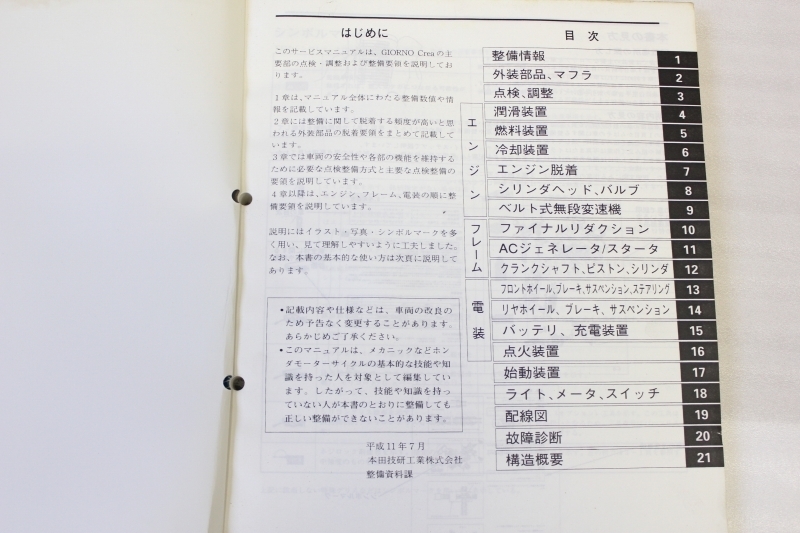 はじめに
このサービスマニュアルは、GIORNO Creaの主
要部の点検・調整および整備要領を説明してお
ります。
1章は、マニュアル全体にわたる整備数値や情
報を記載しています。
2章には整備に関して脱着する頻度が高いと思
われる外装部品の脱着要領をまとめて記載して
います。
3章では車両の安全性や各部の機能を維持する
ために必要な点検整備方式と主要な点検整備の
要領を説明しています。
4章以降は、エンジン、フレーム、電装の順に整
備要領を説明しています。
説明にはイラスト・写真・シンボルマークを多
く用い、見て理解しやすいように工夫しました。
なお、本書の基本的な使い方は次頁に説明して
あります。
•記載内容や仕様などは、車両の改良の
ため予告なく変更することがあります。
あらかじめご了承ください。
•このマニュアルは、メカニックなどホン
ダモーターサイクルの基本的な技能や知
識を持った人を対象として編集してい
ます。したがって、技能や知識を持っ
ていない人が本書のとおりに整備しても
正しい整備ができないことがあります。
平成11年7月
本田技研工業株式会社
整備資料課
目次
整備情報 1
外装部品、マフラ 2
点検、調整 3
エンジン
潤滑装置 4
燃料装置 5
冷却装置 6
エンジン脱着 7
シリンダヘッド、バルブ 8
ベルト式無段変速機 9
フレーム
ファイナルリダクション 10
ACジェネレータ/スタータ 11
クランクシャフト、ピストン、シリンダ 12
電装
フロントホイール、ブレーキ、サスペンション、ステアリング 13
リヤホイール、ブレーキ、サスペンション 14
バッテリ、充電装置 15
点火装置 16
始動装置 17
ライト、メータ、スイッチ 18
配線図 19
故障診断 20
構造概要 21